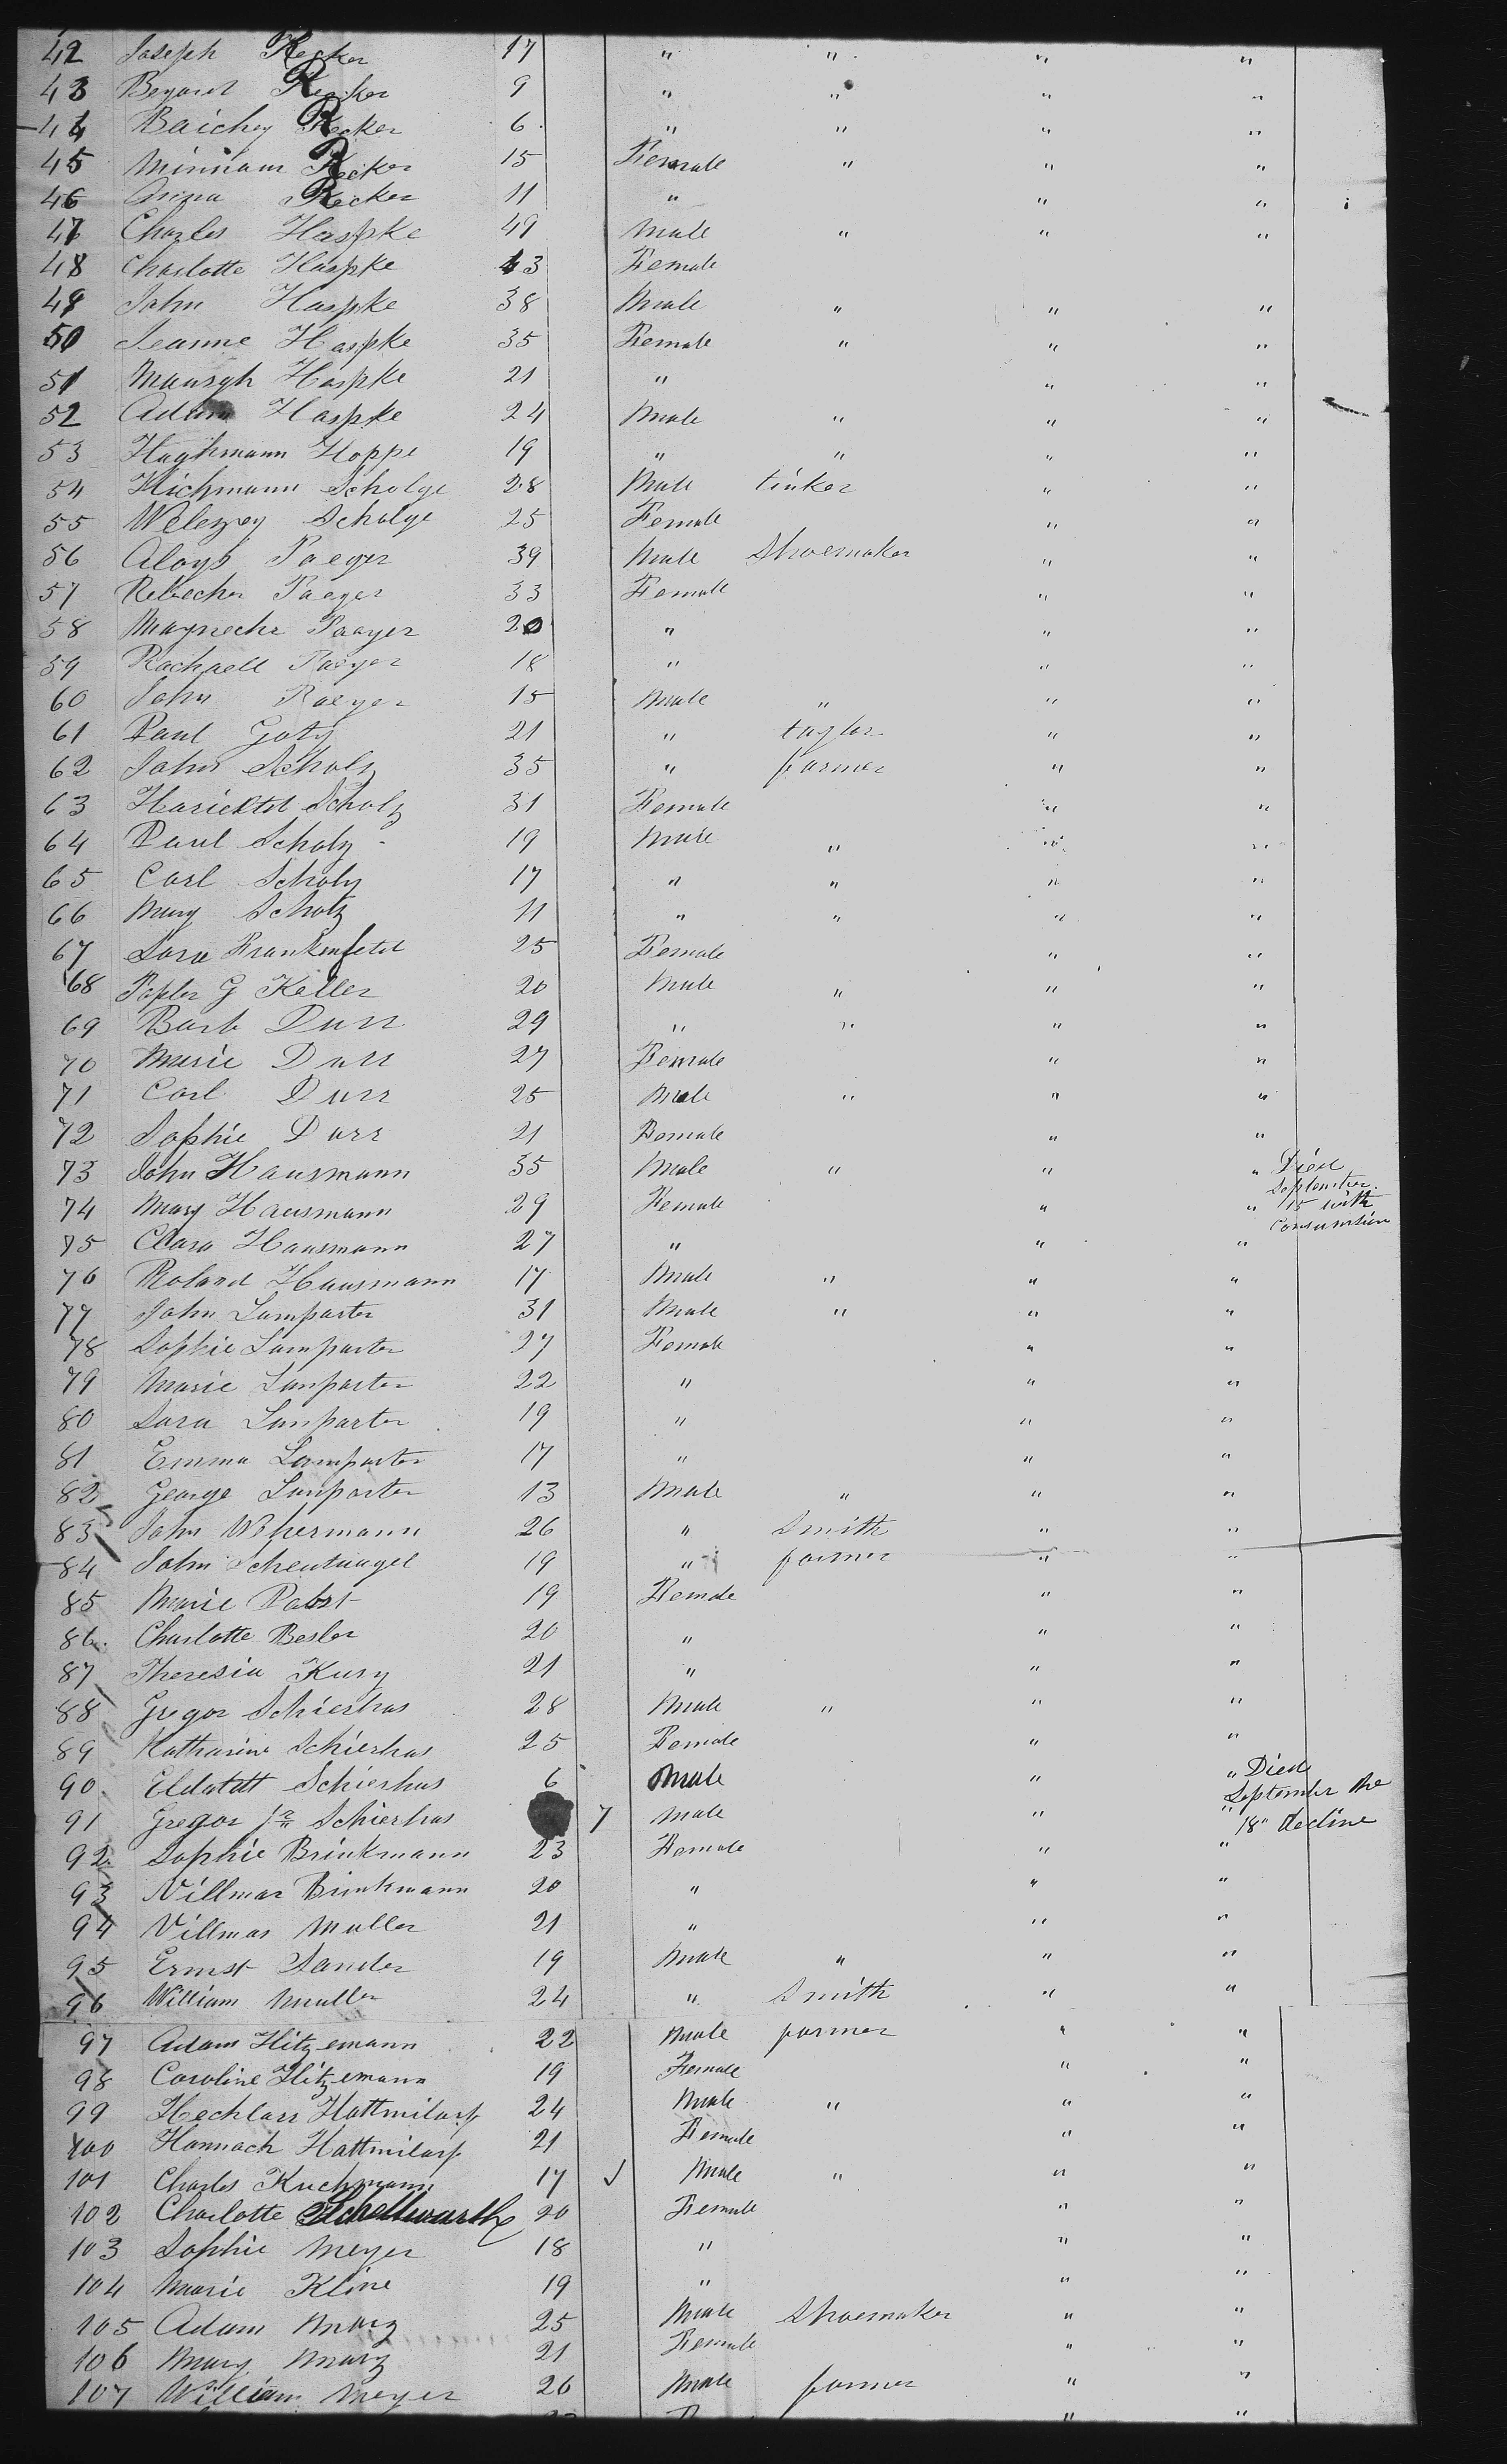 42 Joseph Recker 17 " " " "
43 Begaret Recker 9 " " " "
44 Baichey Recker 6 " " " "
45 Minniam Recker 15 Female " " "
46 Anna Recker 11 " " "
47 Charles Haspke 49 Male " " "
48 Charlotte Haspke 43 Female
49 John Haspke 38 Male " " "
50 Jeanne Haspke 35 Female " " "
51 Haspke 21 " " "
52 Adam Haspke 24 Male " " "
53 Haghmann Hoppe 19 " " " "
54 Hichmann Scholge 28 Male tinker " "
55 Scholge 25 Female " "
56 Aloys Paeger 39 Male Shoemaker " "
57 Rebecher Paeger 33 Female " "
58 Paeger 20 " " "
59 Rachaell Paeger 18 " " "
60 John Paeger 15 Male " " "
61 Paul Goty 21 " taylor " "
62 John Scholz 35 " farmer " "
63 Scholz 31 Female " "
64 Paul Scholz 19 Male " " "
65 Carl Scholz 17 " " " "
66 Mary Scholz 11 " " " "
67 Sara Frankenfeld 25 Female " "
68 G Keller 20 Male " " "
69 Barb Durr 29 " " " "
70 Marie Durr 27 Female " "
71 Carl Durr 25 Male " " "
72 Sophie Durr 21 Female " "
73 John Hausmann 35 Male " " " Died
September
74 Mary Hausmann 29 Female " " 15 with
Consumtion
75 Clara Hausmann 27 " " "
76 Roland Hausmann 17 Male " " "
77 John Lamparter 31 Male " " "
78 Sophie Lamparter 27 Female " "
79 Marie Lamparter 22 " " "
80 Sara Lamparter 19 " " "
81 Emma Lamparter 17 " " "
82 George Lamparter 13 Male " " "
83 John Wehermann 26 " Smith " "
84 John 19 " farmer " "
85 Marie Pabst 19 Female " "
86. Charlotte Besler 20 " " "
87 Theresia Kury 21 " " "
88 Gregor Schierhus 28 Male " " "
89 Katharine Schierhus 25 Female " "
90. Schierhus 6 Male " " Died
September the
91 Gregor jr Schierhus 7 Male " " 18" decline
92 Sophie Brinkmann 23 Female " "
93 Villmar Brinkmann 20 " " "
94 Villmar Muller 21 " " "
95 Ernst Sander 19 Male " " "
96 William Muller 24 " Smith " "
97 Adam Hitzemann 22 Male farmer " "
98 Caroline Hitzemann 19 Female " "
99 Hattmilarp 24 Male " " "
100 Hannach Hattmilarp 21 Female " "
101 Charles Kuchmann 17 Male " " "
102 Charlotte Schellwarth 20 Female " "
103 Sophie Meyer 18 " " "
104 Marie Kline 19 " " "
105 Adam Marz 25 Male Shoemaker " "
106 Mary Marz 21 Female " "
107 William Meyer 26 Male farmer " "